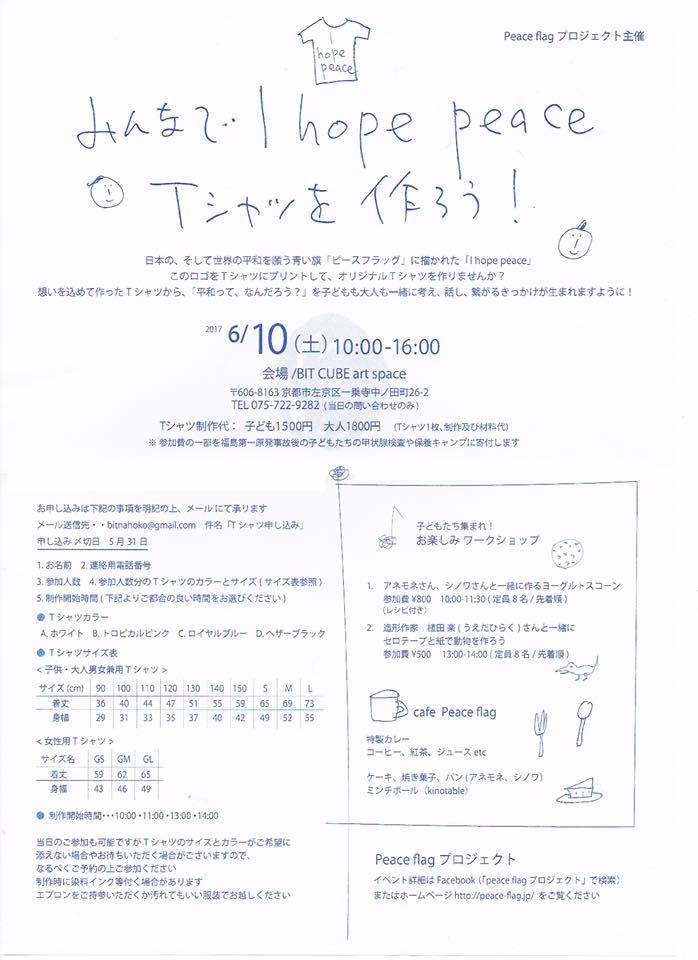 I
hope
peace
Peace flag プロジェクト主催
みんなで I hope peace
Tシャツを作ろう!
日本の、そして世界の平和を願う青い旗「ピースフラッグ」に描かれた「I hope peace」
このロゴをTシャツにプリントして、オリジナルTシャツを作りませんか?
想いを込めて作ったTシャツから、「平和って、なんだろう?」を子どもも大人も一緒に考え、話し、繋がるきっかけが生まれますように!
2017 6/10(土)10:00-16:00
会場 /BIT CUBE art space
〒606-8163 京都市左京区一乗寺中ノ田町26-2
TEL 075-722-9282 (当日の問い合わせのみ)
Tシャツ制作代: 子ども1500円 大人1800円 (Tシャツ1枚、制作及び材料代)
※ 参加費の一部を福島第一原発事故後の子どもたちの甲状腺検査や保養キャンプに寄付します
お申し込みは下記の事項を明記の上、メールにて承ります
メール送信先・・bitnahoko@gmail.com 件名「Tシャツ申し込み」
申し込み〆切日 5月31日
1.お名前 2.連絡用電話番号
3.参加人数 4.参加人数分のTシャツのカラーとサイズ(サイズ表参照)
5.制作開始時間(下記よりご都合の良い時間をお選びください)
● Tシャツカラー
A.ホワイト B.トロピカルピンク C.ロイヤルブルー D.ヘザーブラック
● Tシャツサイズ表
<子供・大人男女兼用Tシャツ>
サイズ(cm) 90 100 110 120 130 140 150 S M L
着丈 36 40 44 47 51 55 59 65 69 73
身幅 29 31 33 35 37 40 42 49 52 55
<女性用Tシャツ>
サイズ名 GS GM GL
着丈 59 62 65
身幅 43 46 49
● 制作開始時間・・・10:00・11:00・13:00・14:00
当日のご参加も可能ですがTシャツのサイズとカラーがご希望に
添えない場合やお待ちいただく場合がございますので、
なるべくご予約の上ご参加ください
制作時に染料インク等付く場合があります
エプロンをご持参いただくか汚れてもいい服装でお越しください
子どもたち集まれ!
お楽しみ ワークショップ
1. アネモネさん、シノワさんと一緒に作るヨーグルトスコーン
参加費¥800 10:00-11:30(定員8名/先着順)
(レシピ付き)
2. 造形作家 植田 楽(うえだひらく)さんと一緒に
セロテープと紙で動物を作ろう
参加費¥500 13:00-14:00(定員8名/先着順)
cafe Peace flag
特製カレー
コーヒー、紅茶、ジュース etc
ケーキ、焼き菓子、パン(アネモネ、シノワ)
ミンチボール(kinotable)
Peace flag プロジェクト
イベント詳細は Facebook(「peace flag プロジェクト」で検索)
またはホームページ http://peace-flag.jp/ をご覧ください